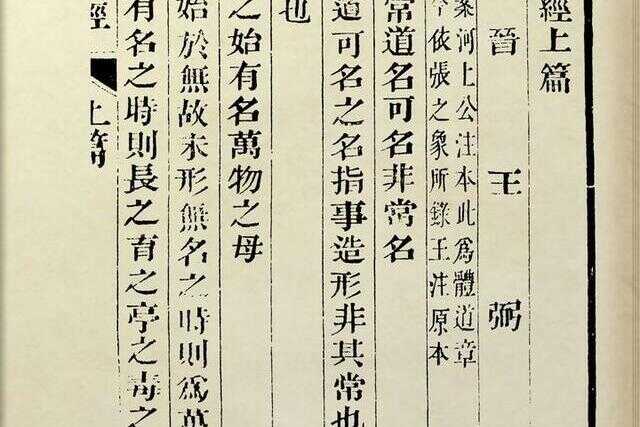 經上篇
晉 王 弼
案河上公注本此爲體道章
今依張之象所錄王注原本
常道名可名非常名
道可名之名指事造形非其常也
也
之始有名萬物之母
始於無故未形無名之時則爲萬
有名之時則長之育之亭之毒之
經 上篇